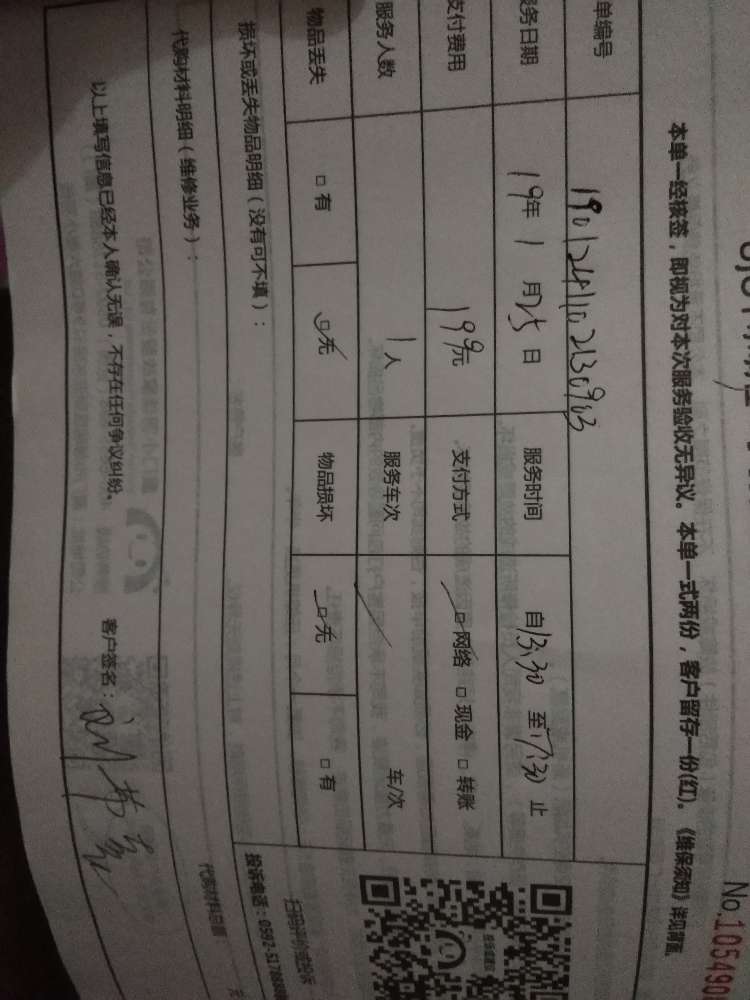 No.105490
本单一经核签，即视为对本次服务验收无异议。本单一式两份，客户留存一份(红)。《维保须知》详见背面。
单编号 1901241102130903
服务日期 19年 1 月25日 服务时间 自13:30 至17:30 止
支付费用 199元 支付方式 □网络 □现金 □转账
服务人数 1人 服务车次 车/次
物品丢失 □有 □无 物品损坏 □无 □有
损坏或丢失物品明细（没有可不填）：
代购材料明细（维修业务）：
元
以上填写信息已经本人确认无误，不存在任何争议纠纷。 客户签名：
扫码评价或投诉
投诉电话：0592-5178